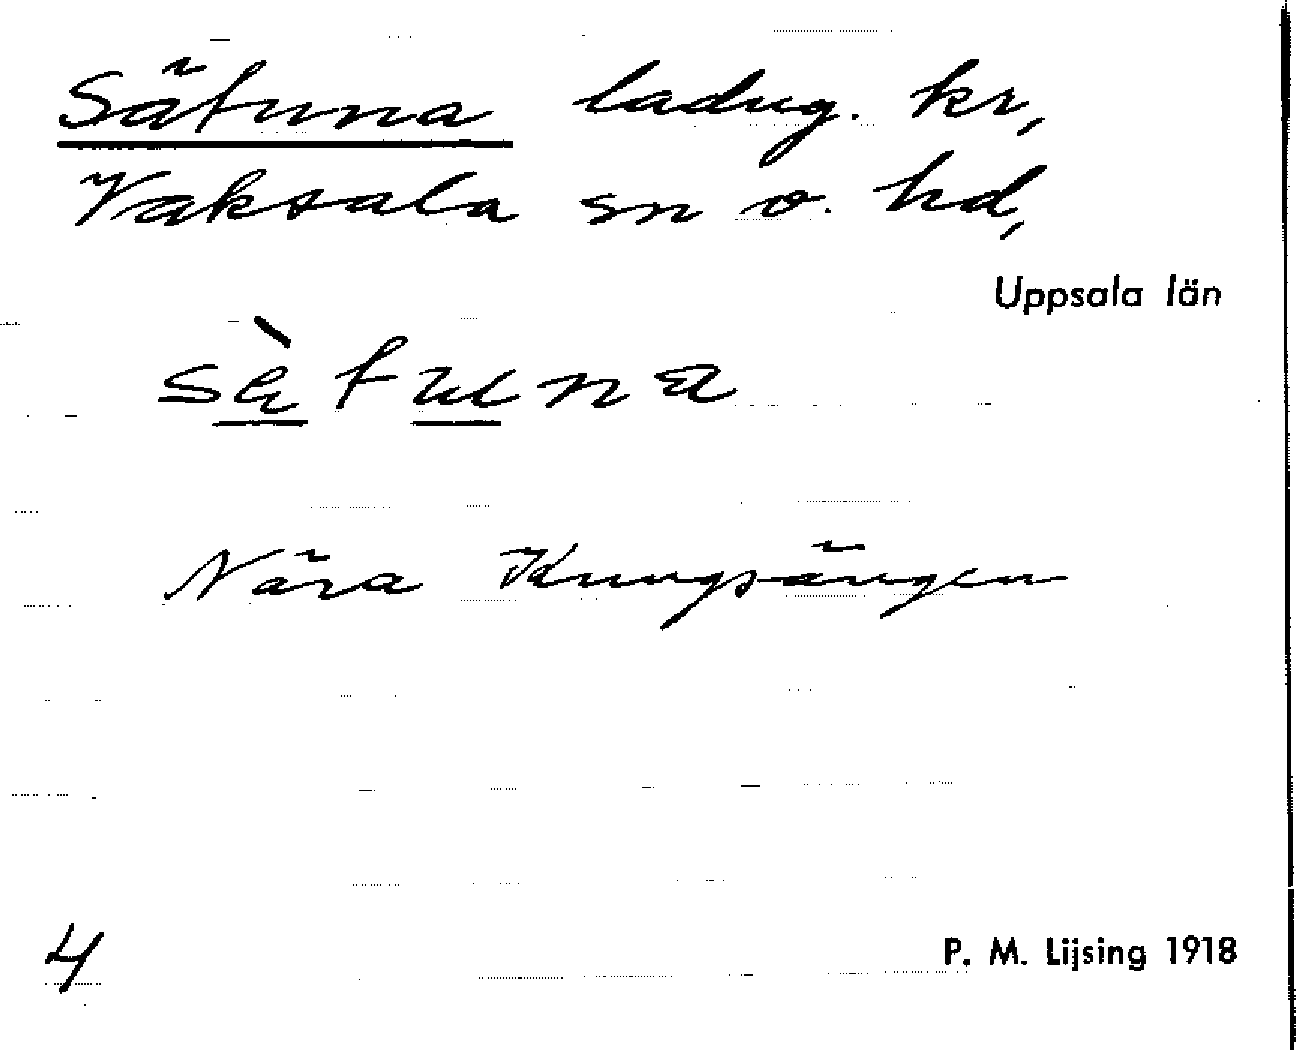 Sätuna ladug. kr,
Vaksala sn o. hd,
Uppsala län
sὰtuna
Nära Kungsängen
4
P. M. Lijsing 1918